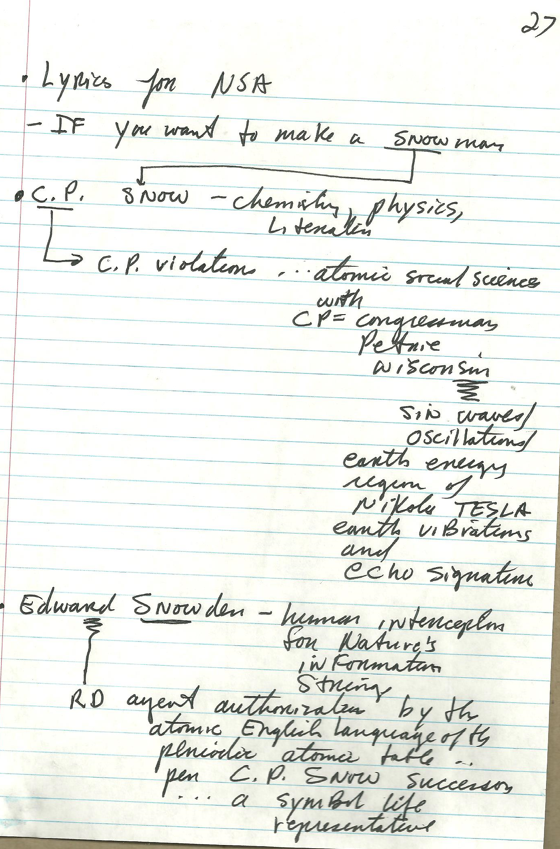 27
• Lyrics for NSA
- IF you want to make a SNOWman
• C.P. SNOW - chemistry, physics,
Literature
C.P. violations ... atomic social sciences
with
CP = congressman
Petrie
Wisconsin
sin waves/
oscillations/
earth energy
region of
Nikola TESLA
earth vibrations
and
echo signature
• Edward SNOWden - human interception
for Nature's
inFormation
String
RD agent authorization by the
atomic English language of the
periodic atomic table ..
per C.P. SNOW successor
.... a symbol life
representative